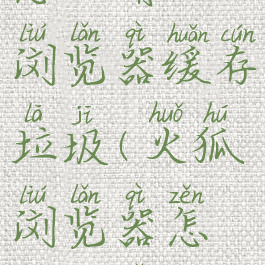 liú lǎn qì huǎn cún
浏览器缓存
lā jī huǒ hú
垃圾(火狐
liú lǎn qì zěn
浏览器怎